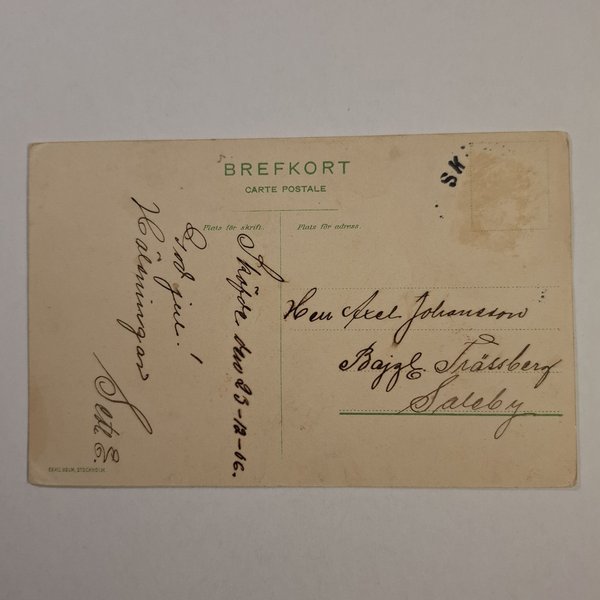 BREFKORT
CARTE POSTALE
Plats för skrift.
Plats för adress.
SK
Sköfde den 23-12-06.
God jul!
Hälsningar
E.
Herr Axel Johansson
Trässberg
Saleby
STOCKHOLM.